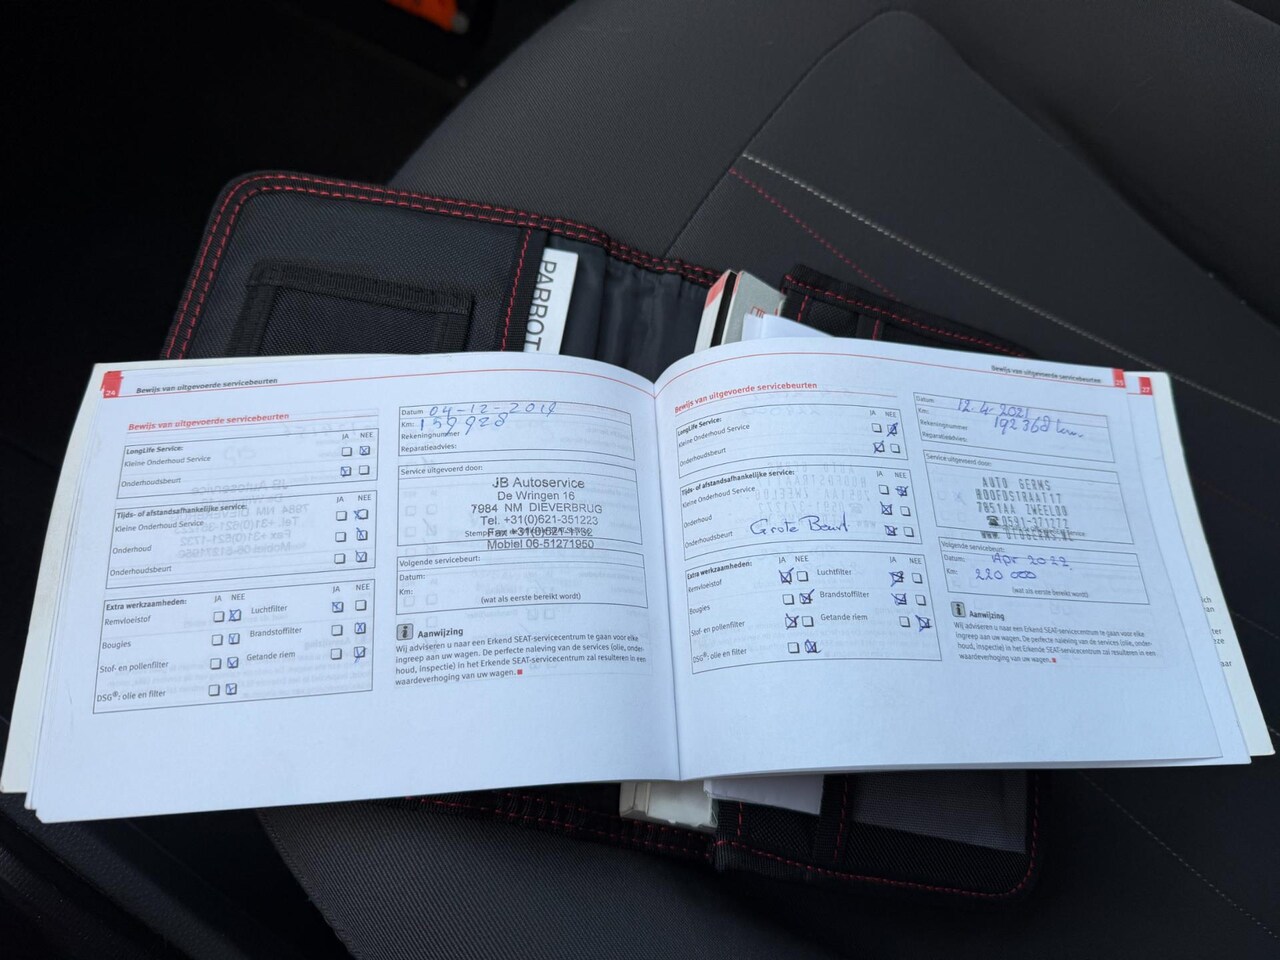 PARROT
24
Bewijs van uitgevoerde servicebeurten
Bewijs van uitgevoerde servicebeurten
JA NEE
LongLife Service:
Kleine Onderhoud Service
Onderhoudsbeurt
JA NEE
Tijds- of afstandsafhankelijke service:
Kleine Onderhoud Service
Onderhoud
Onderhoudsbeurt
Extra werkzaamheden:
JA NEE
JA NEE
Remvloeistof
Luchtfilter
Bougies
Brandstoffilter
Stof- en pollenfilter
Getande riem
DSG®: olie en filter
Datum 04-12-2018
Km: 159928
Rekeningnummer
Reparatieadvies:
Service uitgevoerd door:
JB Autoservice
De Wringen 16
7984 NM DIEVERBRUG
Tel. +31(0)621-351223
Fax +31(0)521-1732
Mobiel 06-51271950
Volgende servicebeurt:
Datum:
Km:
(wat als eerste bereikt wordt)
Aanwijzing
Wij adviseren u naar een Erkend SEAT-servicecentrum te gaan voor elke
ingreep aan uw wagen. De perfecte naleving van de services (olie, onder-
houd, inspectie) in het Erkende SEAT-servicecentrum zal resulteren in een
waardeverhoging van uw wagen.
Bewijs van uitgevoerde servicebeurten
25
27
Bewijs van uitgevoerde servicebeurten
JA NEE
LongLife Service:
Kleine Onderhoud Service
Onderhoudsbeurt
JA NEE
Tijds- of afstandsafhankelijke service:
Kleine Onderhoud Service
Onderhoud
Onderhoudsbeurt
Grote Beurt
Extra werkzaamheden:
JA NEE
JA NEE
Remvloeistof
Luchtfilter
Bougies
Brandstoffilter
Stof- en pollenfilter
Getande riem
DSG®: olie en filter
Datum 12-4-2021
Km: 192368 km.
Rekeningnummer
Reparatieadvies:
Service uitgevoerd door:
AUTO GERMS
HOOFDSTRAAT 17
7851AA ZWEELOO
☎ 0591-371277
Volgende servicebeurt:
Datum: Apr 2022
Km: 220 000
(wat als eerste bereikt wordt)
Aanwijzing
Wij adviseren u naar een Erkend SEAT-servicecentrum te gaan voor elke
ingreep aan uw wagen. De perfecte naleving van de services (olie, onder-
houd, inspectie) in het Erkende SEAT-servicecentrum zal resulteren in een
waardeverhoging van uw wagen.